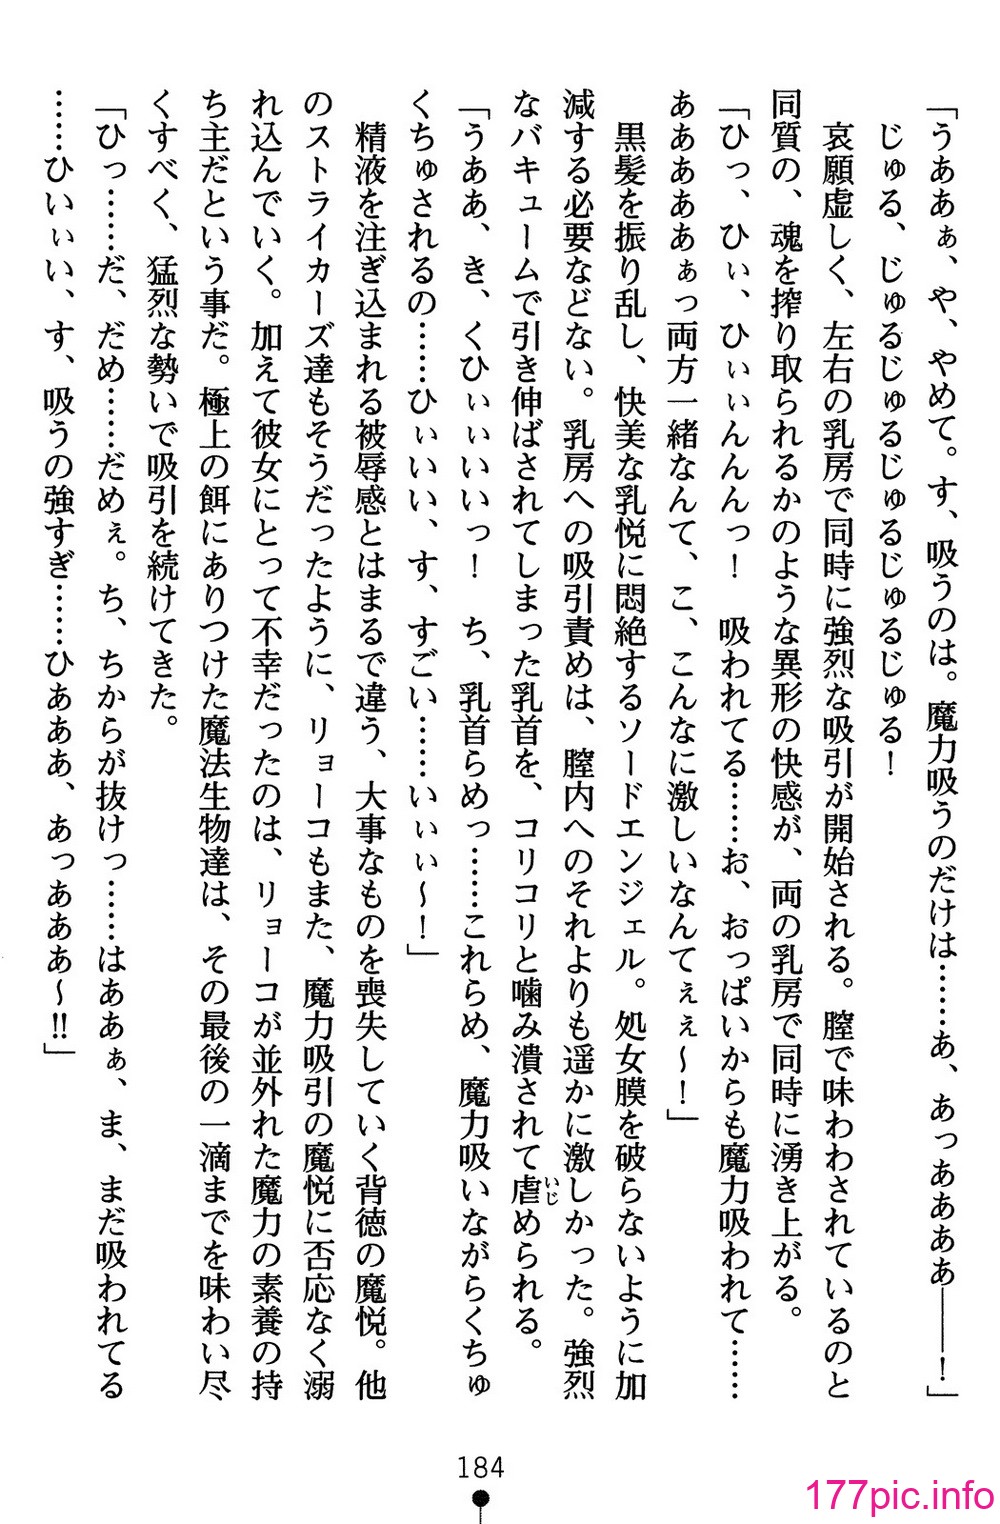 「うああぁ、や、やめて。す、吸うのは。魔力吸うのだけは……あ、あっああああ――！」
じゅる、じゅるじゅるじゅるじゅるじゅる！
哀願虚しく、左右の乳房で同時に強烈な吸引が開始される。膣で味わわされているのと
同質の、魂を搾り取られるかのような異形の快感が、両の乳房で同時に湧き上がる。
「ひっ、ひぃ、ひぃぃんんんっ！　吸われてる……お、おっぱいからも魔力吸われて……
あああああぁっ両方一緒なんて、こ、こんなに激しいなんてぇぇ～！」
黒髪を振り乱し、快美な乳悦に悶絶するソードエンジェル。処女膜を破らないように加
減する必要などない。乳房への吸引責めは、膣内へのそれよりも遥かに激しかった。強烈
なバキュームで引き伸ばされてしまった乳首を、コリコリと噛み潰されて虐められる。
いじ
「うああ、き、くひぃぃいいっ！　ち、乳首らめっ……これらめ、魔力吸いながらくちゅ
くちゅされるの……ひぃいい、す、すごい……いぃぃ～！」
精液を注ぎ込まれる被辱感とはまるで違う、大事なものを喪失していく背徳の魔悦。他
のストライカーズ達もそうだったように、リョーコもまた、魔力吸引の魔悦に否応なく溺
れ込んでいく。加えて彼女にとって不幸だったのは、リョーコが並外れた魔力の素養の持
ち主だという事だ。極上の餌にありつけた魔法生物達は、その最後の一滴までを味わい尽
くすべく、猛烈な勢いで吸引を続けてきた。
「ひっ……だ、だめ……だめぇ。ち、ちからが抜けっ……はああぁ、ま、まだ吸われてる
……ひいぃい、す、吸うの強すぎ……ひあああ、あっあああ～!!」
184
177pic.info